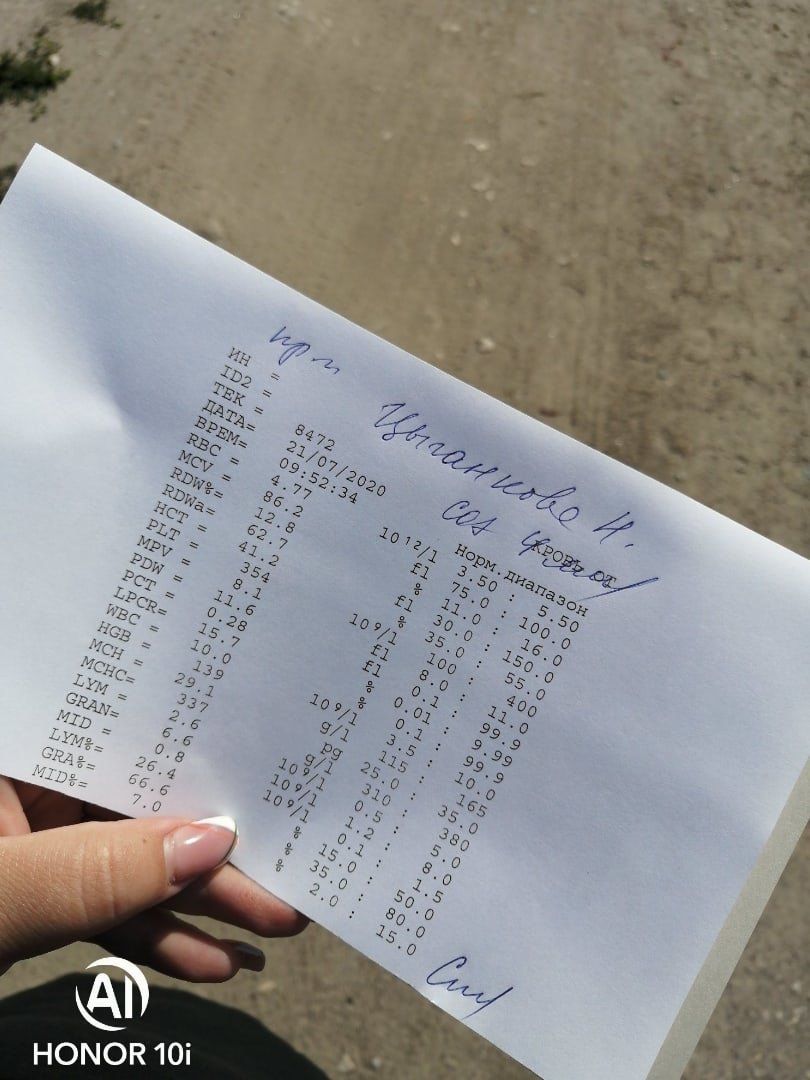 Цыганкова Н.
ИН =
ID2 =
ТЕК = 8472
ДАТА= 21/07/2020
ВРЕМ= 09:52:34 Норм.диапазон
RBC = 4.77 10¹²/l 3.50 : 5.50
MCV = 86.2 fl 75.0 : 100.0
RDW%= 12.8 % 11.0 : 16.0
RDWa= 62.7 fl 30.0 : 150.0
HCT = 41.2 % 35.0 : 55.0
PLT = 354 10⁹/l 100 : 400
MPV = 8.1 fl 8.0 : 11.0
PDW = 11.6 fl 0.1 : 99.9
PCT = 0.28 % 0.01 : 9.99
LPCR= 15.7 % 0.1 : 99.9
WBC = 10.0 10⁹/l 3.5 : 10.0
HGB = 139 g/l 115 : 165
MCH = 29.1 pg 25.0 : 35.0
MCHC= 337 g/l 310 : 380
LYM = 2.6 10⁹/l 0.5 : 5.0
GRAN= 6.6 10⁹/l 1.2 : 8.0
MID = 0.8 10⁹/l 0.1 : 1.5
LYM%= 26.4 % 15.0 : 50.0
GRA%= 66.6 % 35.0 : 80.0
MID%= 7.0 % 2.0 : 15.0
AI
HONOR 10i